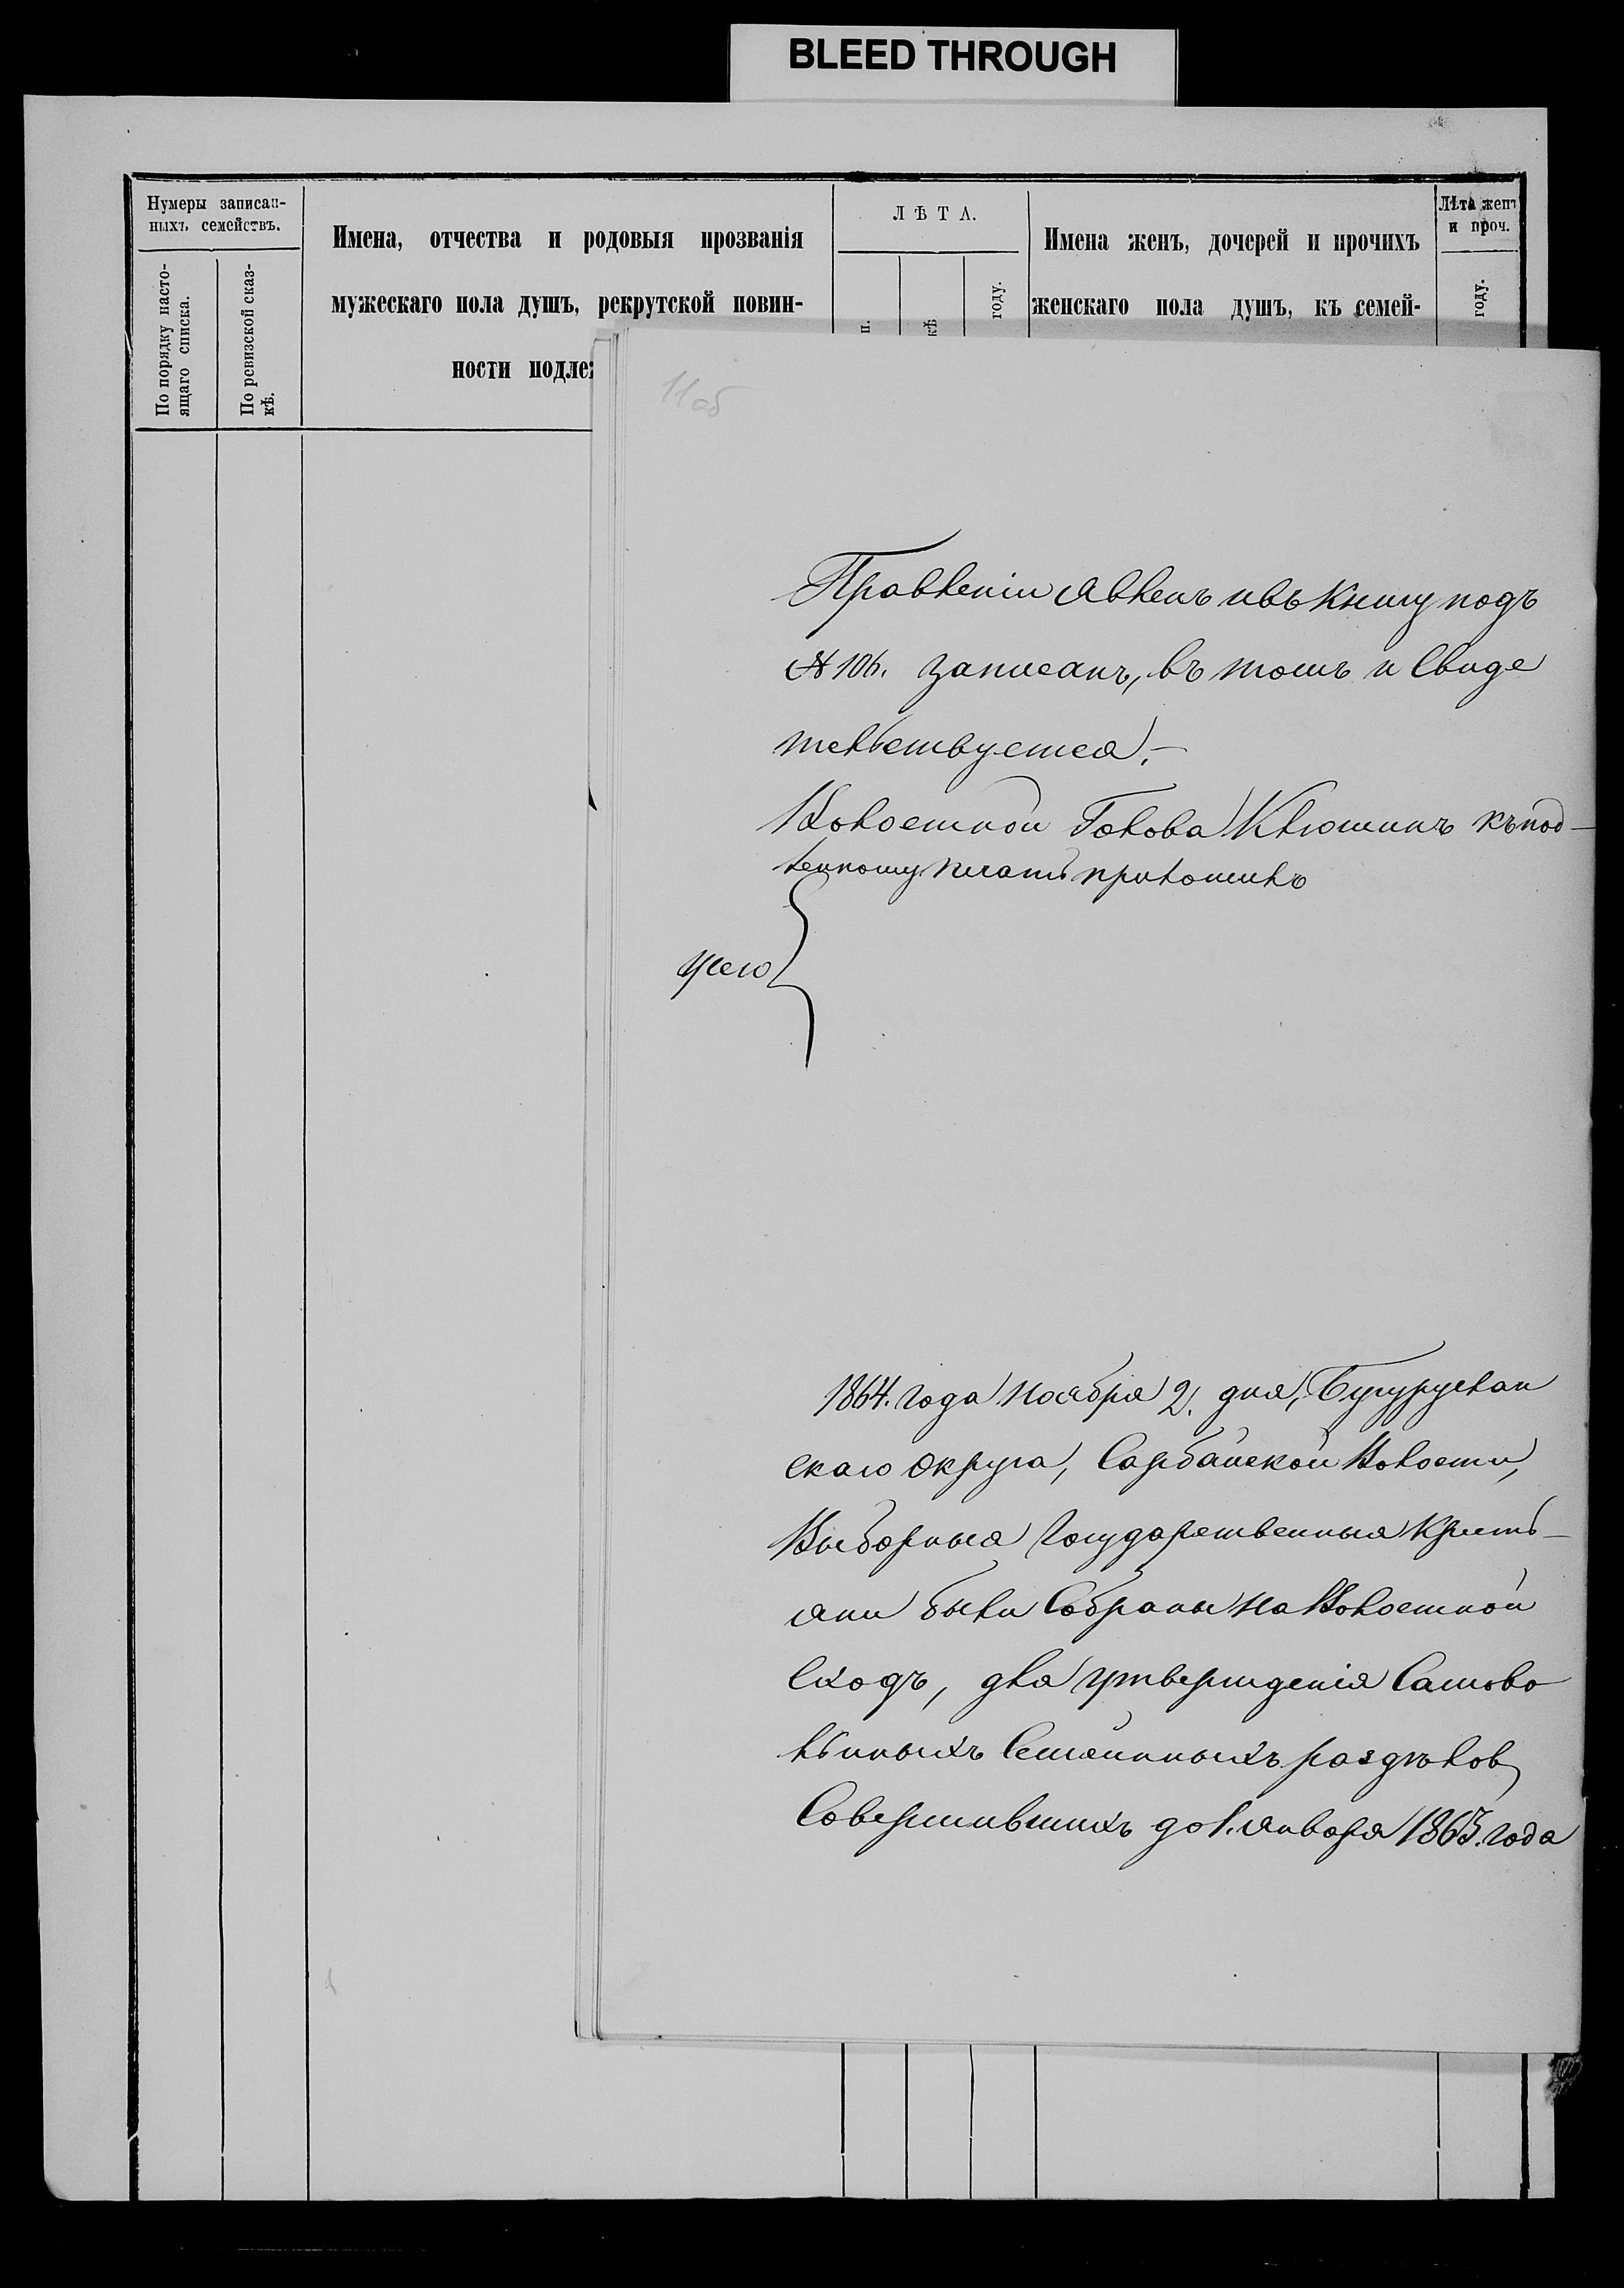 BLEED THROUGH
Нумеры записан-
ныхъ семействъ.
По порядку насто-
ящаго списка.
По ревизской сказ-
кѣ.
Имена, отчества и родовыя прозванія
мужескаго пола душъ, рекрутской повин-
ности подле
ЛѢТА.
п.
кѣ
году.
Имена женъ, дочерей и прочихъ
женскаго пола душъ, къ семей-
Лѣта женъ
и проч.
году.
11об
Правленіи явленъ ивъ Книгу подъ
№ 106. записанъ, въ томъ и Свиде
тельствуется.-
Волостной Голова Клюшинъ къ под-
ленному печать приложилъ
1864. года Ноября 2. дня, Бугуруслан
скаго Округа, Сарбайской Волости,
Выборныя Государственныя Кресть-
яни были Собраны На Волостной
Сходъ, для утвержденія Самово
льныхъ Семейныхъ раздѣлов
Совершившихъ до 1. января 1863. года